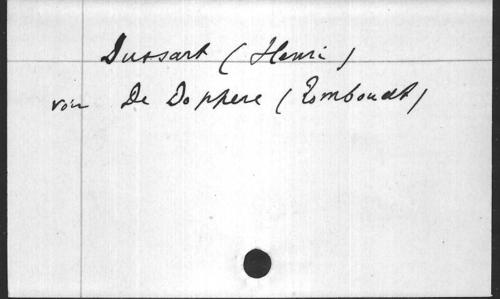 Dussart (Henri)
voir De Doppere (Romboudt)